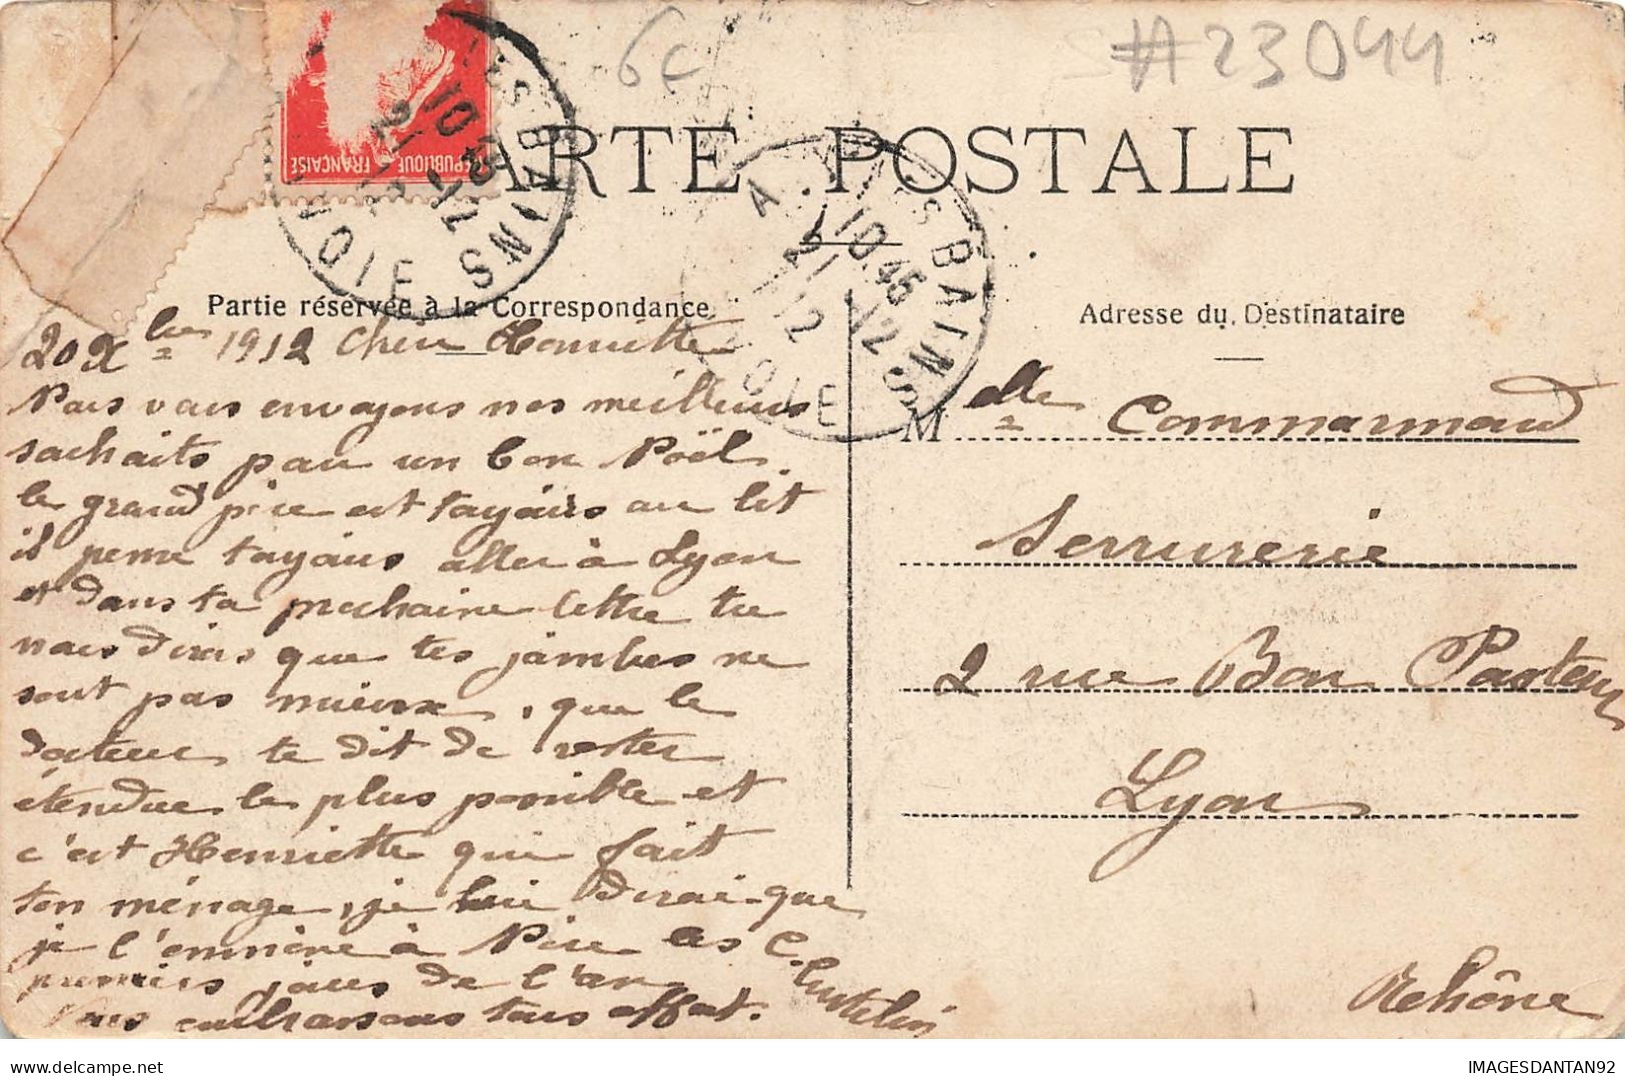 6€
#23044
RÉPUBLIQUE FRANÇAISE
CARTE POSTALE
ES BAINS
10
21-12
12
OIE
A
ES BAINS
10.45
21-12
12
OIE
Partie réservée à la Correspondance
Adresse du Destinataire
20 Xbre 1912 Cher Henriette
Nous vous envoyons nos meilleurs
souhaits pour un bon Noël.
le grand père est toujours au lit
il pense toujours aller à Lyon
et dans ta prochaine lettre tu
nous diras que tes jambes ne
sont pas mieux, que le
docteur te dit de rester
étendue le plus possible et
c'est Henriette qui fait
ton ménage, je lui dirai que
je l'emmène à Nice les
premiers jours de l'an
Nous embrassons tous affect.
M elle Commarmond
Serrurerie
2 rue Bon Pasteur
Lyon
Rhône
IMAGESDANTAN92